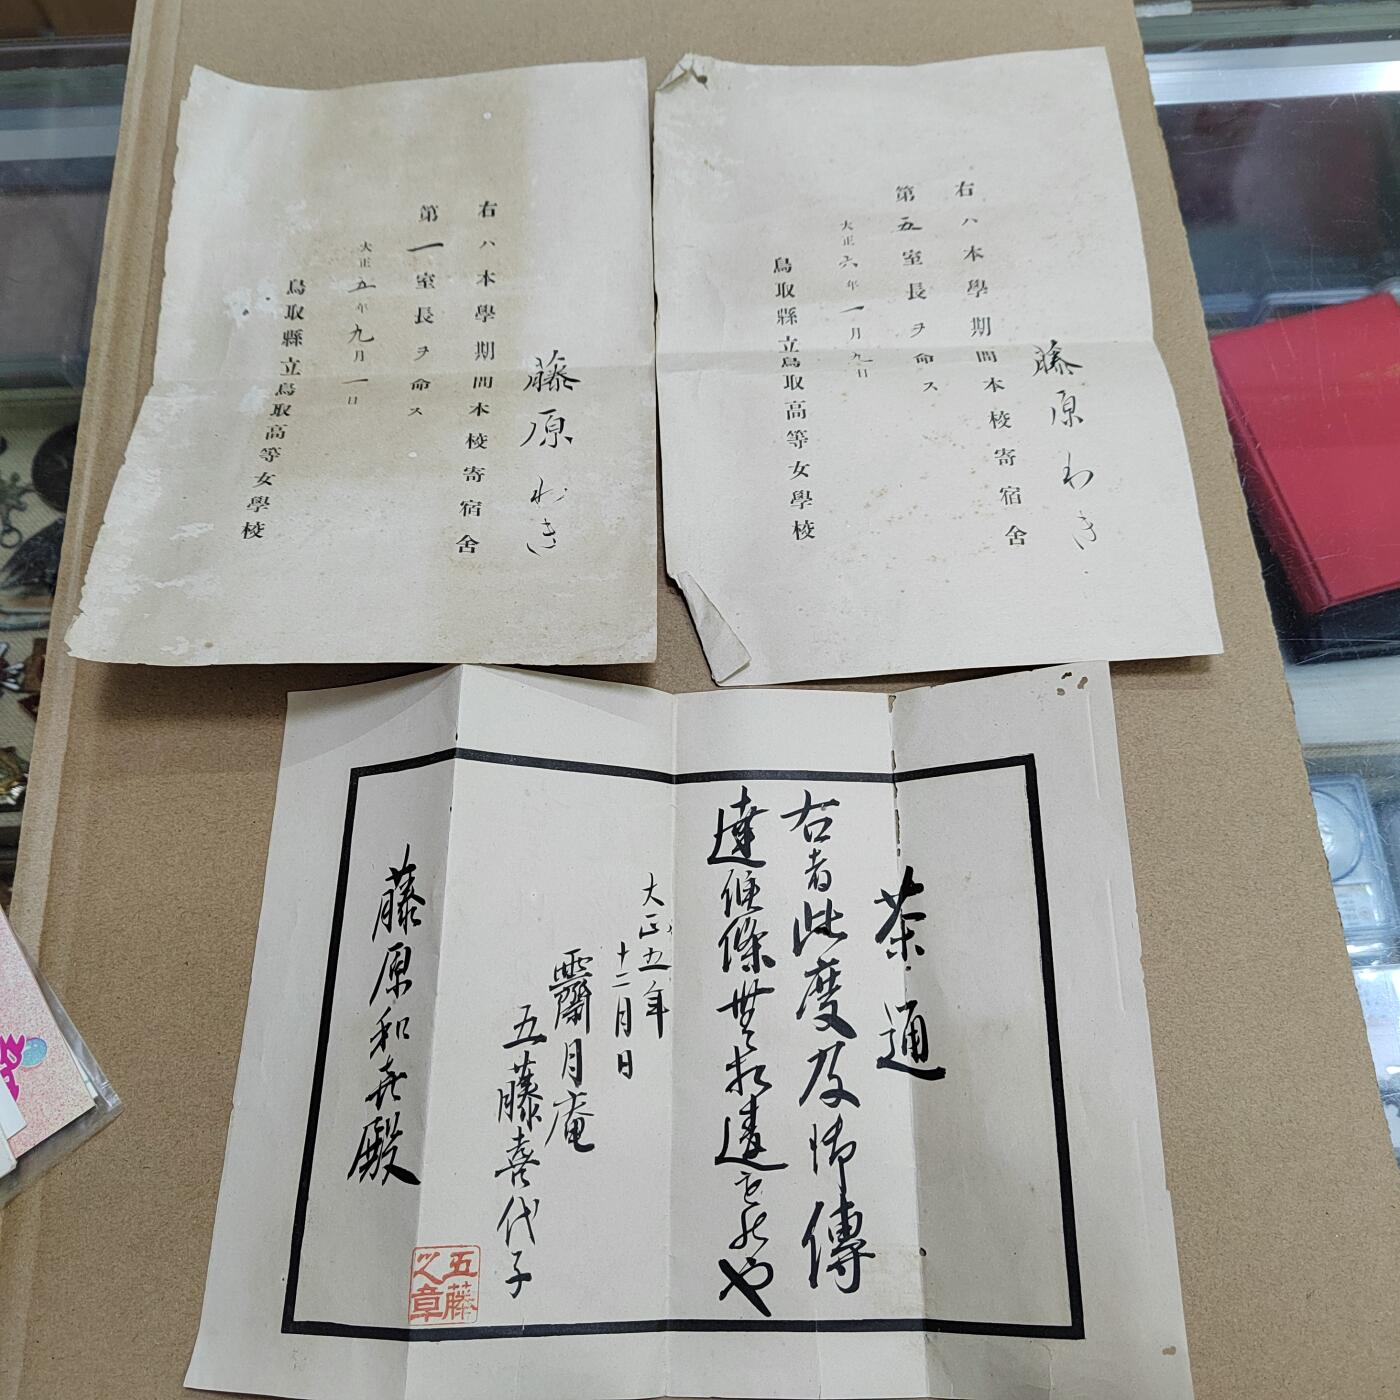 藤原わき
右ハ本學期間本校寄宿舍
第一室長ヲ命ス
大正五年九月一日
鳥取縣立鳥取高等女學校
藤原わき
右ハ本學期間本校寄宿舍
第五室長ヲ命ス
大正六年一月九日
鳥取縣立鳥取高等女學校
茶通
右者此度及御傳
達候條世
大正五年
十二月日
月庵
五藤喜代子
五藤
之章
藤原和喜殿